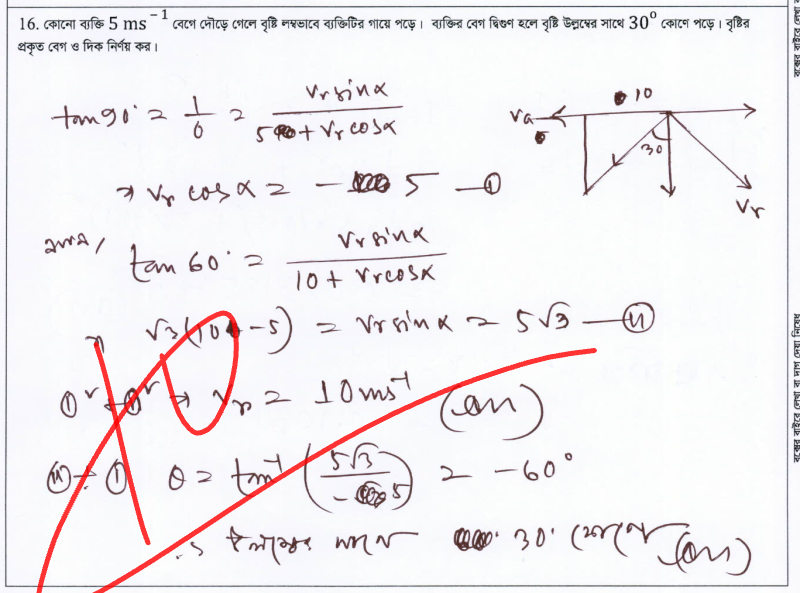 16. কোনো ব্যক্তি 5 ms⁻¹ বেগে দৌড়ে গেলে বৃষ্টি লম্বভাবে ব্যক্তিটির গায়ে পড়ে। ব্যক্তির বেগ দ্বিগুণ হলে বৃষ্টি উল্লম্বের সাথে 30° কোণে পড়ে। বৃষ্টির
প্রকৃত বেগ ও দিক নির্ণয় কর।
tan 90° = 1/0 = Vr sinα / (5 + Vr cosα)
⇒ Vr cosα = - 5 —①
tan 60° = Vr sinα / (10 + Vr cosα)
⇒ √3(10 - 5) = Vr sinα = 5√3 —②
⇒ Vr = 10 ms⁻¹ (Ans)
② ÷ ① θ = tan⁻¹ (5√3 / -5) = -60°
∴ উলম্বের সাথে 30° কোণে (Ans)
10
Va
30
Vr